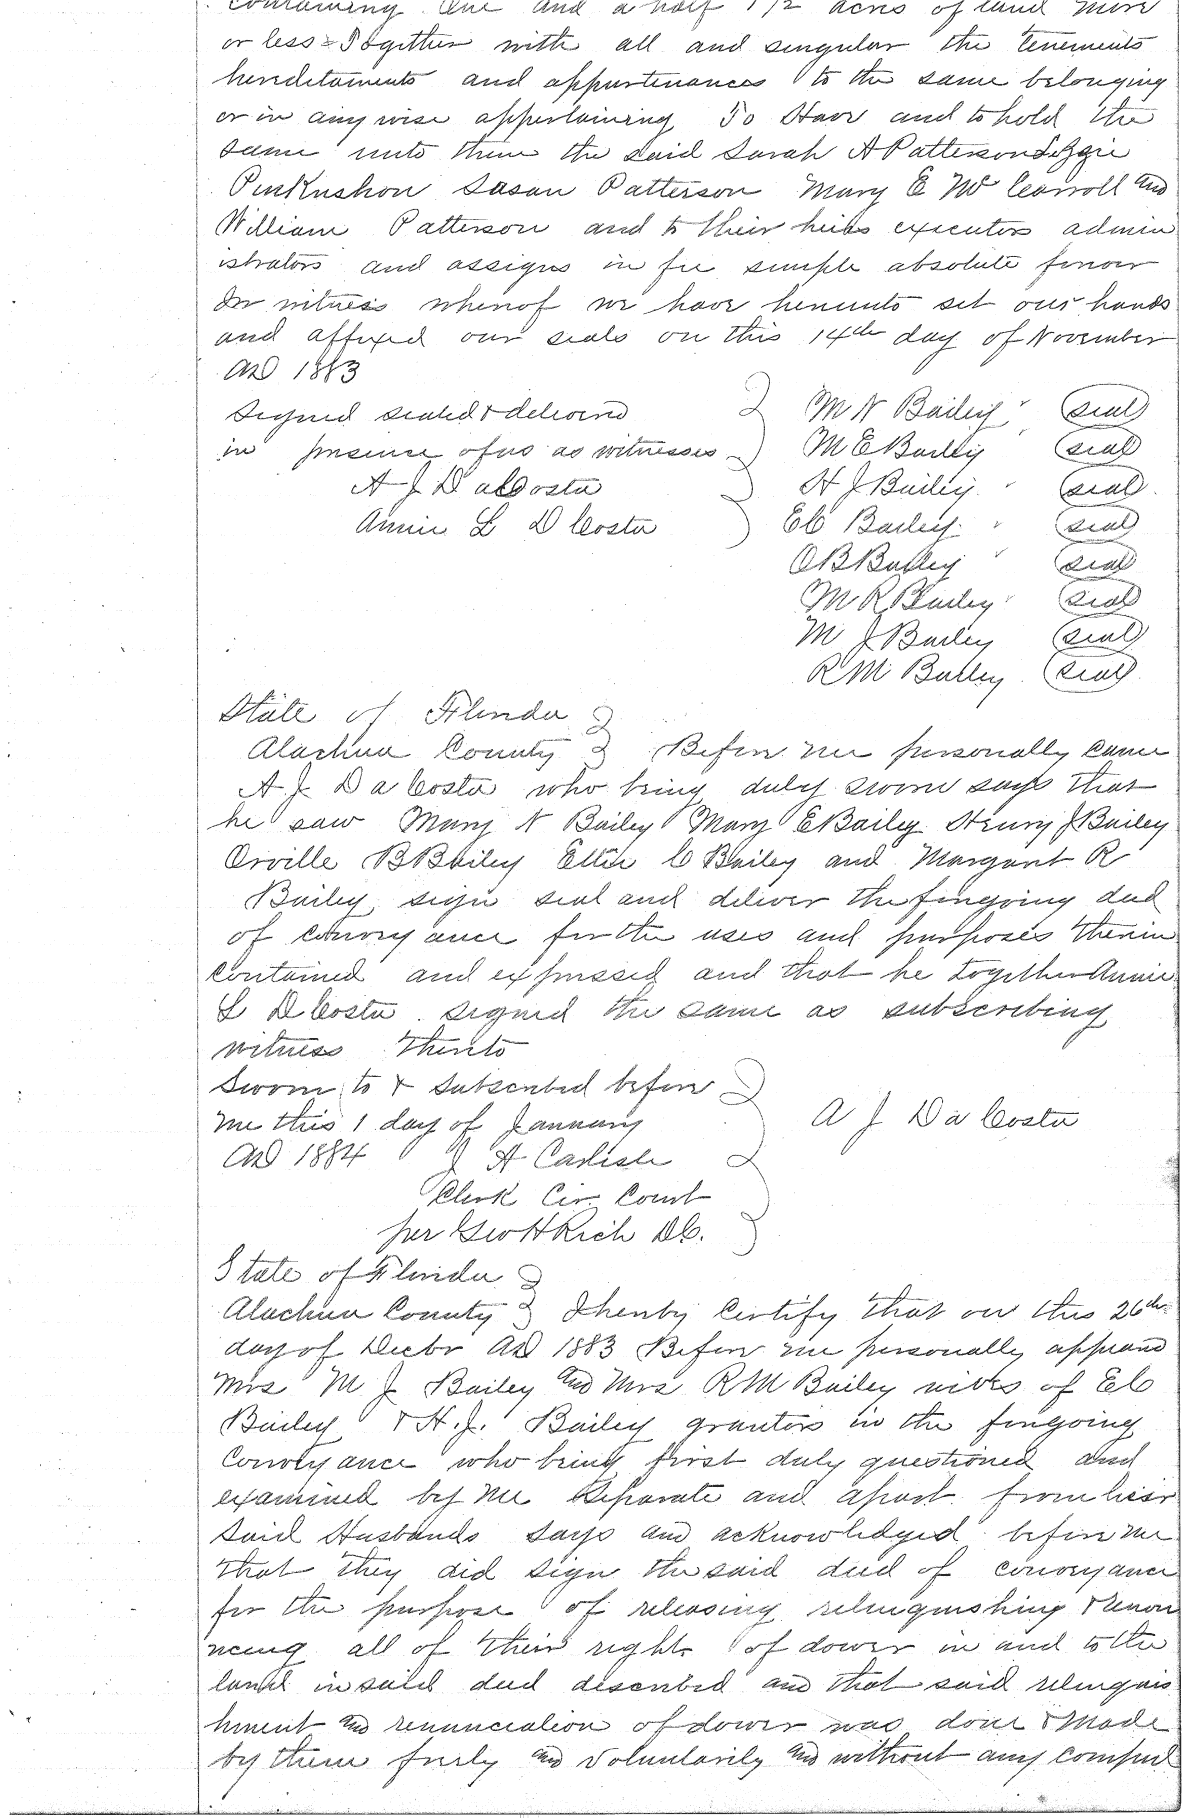 containing One and a half 1 1/2 acres of land more
or less = Together with all and singular the tenements
hereditaments and appurtenances to the same belonging
or in anywise appertaining To Have and to hold the
same unto them the said Sarah A Patterson Lizzie
Pinkushon Susan Patterson Mary E McCarroll and
William Patterson and to their heirs executors admin
istrators and assigns in fee simple absolute forever
In witness whereof we have hereunto set our hands
and affixed our seals on this 14th day of November
AD 1883
Signed sealed & delivered
in presence of us as witnesses
A J Da Costa
Annie L D Costa
M N Bailey (seal)
M E Bailey (seal)
H J Bailey (seal)
E C Bailey (seal)
O B Bailey (seal)
M R Bailey (seal)
M J Bailey (seal)
R M Bailey (seal)
State of Florida
Alachua County Before me personally came
A J Da Costa who being duly sworn says that
he saw Mary N Bailey Mary E Bailey Henry J Bailey
Orville B Bailey Ettie C Bailey and Margaret R
Bailey sign seal and deliver the foregoing deed
of conveyance for the uses and purposes therein
contained and expressed and that he together Annie
L D Costa signed the same as subscribing
witness thereto
Sworn to & subscribed before
me this 1 day of January
AD 1884 J A Carlisle
Clerk Cir Court
per Geo H Rich D C.
A J Da Costa
State of Florida
Alachua County I hereby certify that on this 26th
day of Decbr AD 1883 Before me personally appeared
Mrs M J Bailey and Mrs R M Bailey wives of E C
Bailey & H. J. Bailey grantors in the foregoing
Conveyance who being first duly questioned and
examined by me separate and apart from their
said Husbands says and acknowledged before me
that they did sign the said deed of conveyance
for the purpose of releasing relinquishing & renou
ncing all of their right of dower in and to the
land in said deed described and that said relinquis
hment and renunciation of dower was done & made
by them freely and voluntarily and without any compul